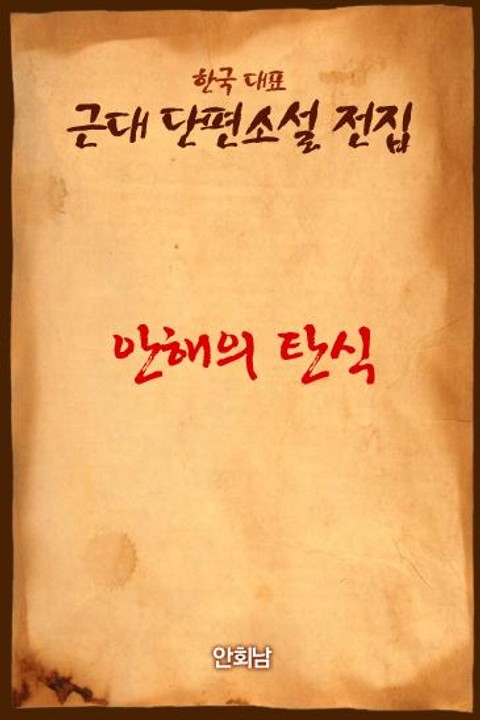 한국 대표
근대 단편소설 전집
안해의 탄식
안회남